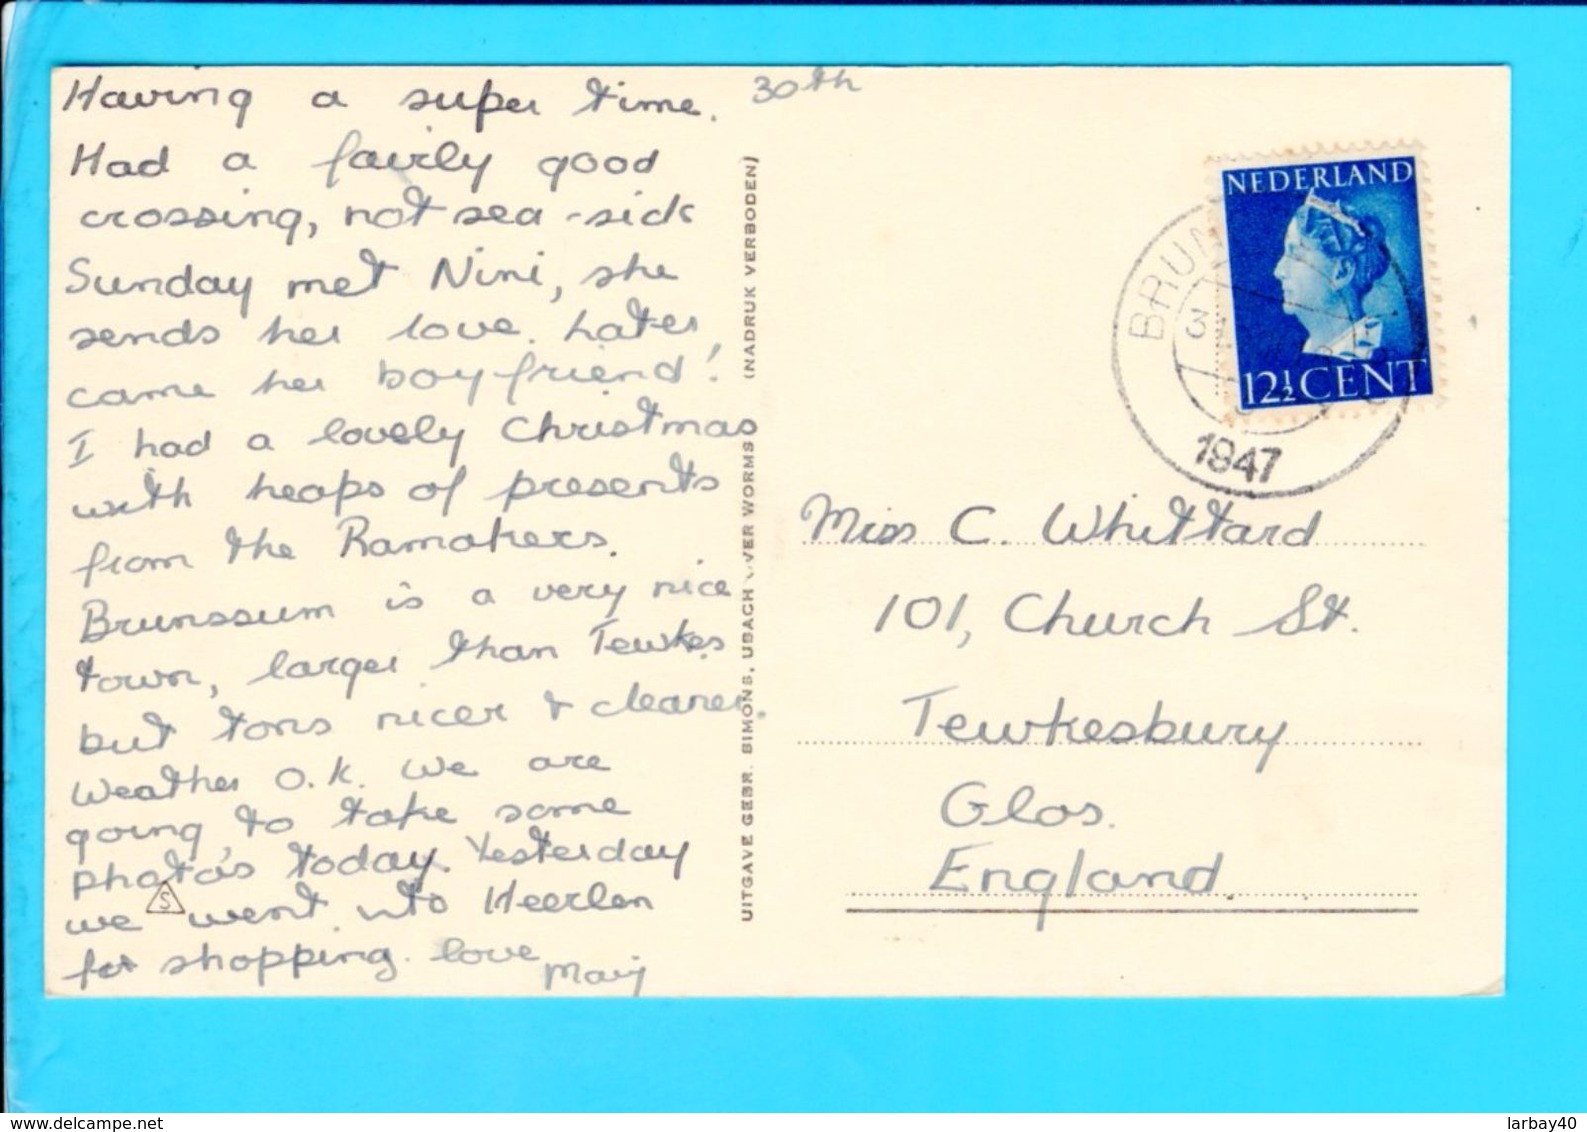 Having a super time. 30th
Had a fairly good
crossing, not sea-sick
Sunday met Nini, she
sends her love. Later
came her boyfriend!
I had a lovely Christmas
with heaps of presents
from the Ramakers.
Brunssum is a very nice
town, larger than Tewkes.
but tons nicer & cleaner.
Weather O.K. We are
going to take some
photo's today. Yesterday
we went into Heerlen
for shopping. love
Mary
S
UITGAVE GEBR. SIMONS, UBACH OVER WORMS (NADRUK VERBODEN)
NEDERLAND
12½ CENT
BRUN
3
1947
Miss C. Whittard
101, Church St.
Tewkesbury
Glos.
England
www.delcampe.net
larbay40